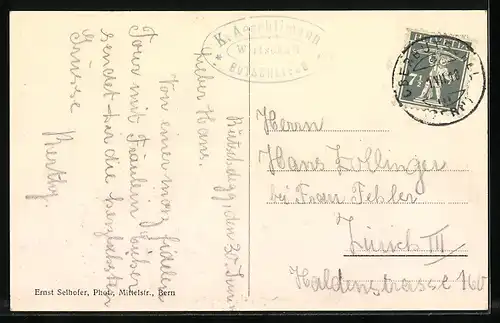 K. Aeschlimann
Wirtschaft
HELVETIA
7½
Rütschdegg, den 30. Juni
Lieber Hans.
Von einer ganz fidelen
Tour mit Fräulein
sendet dir die herzlichsten
Grüsse
Berthy.
Herrn
Hans Zollinger
bei Frau Fehler
Zürich III
Haldenstrasse 160
Ernst Selhofer, Phot., Mittelstr., Bern